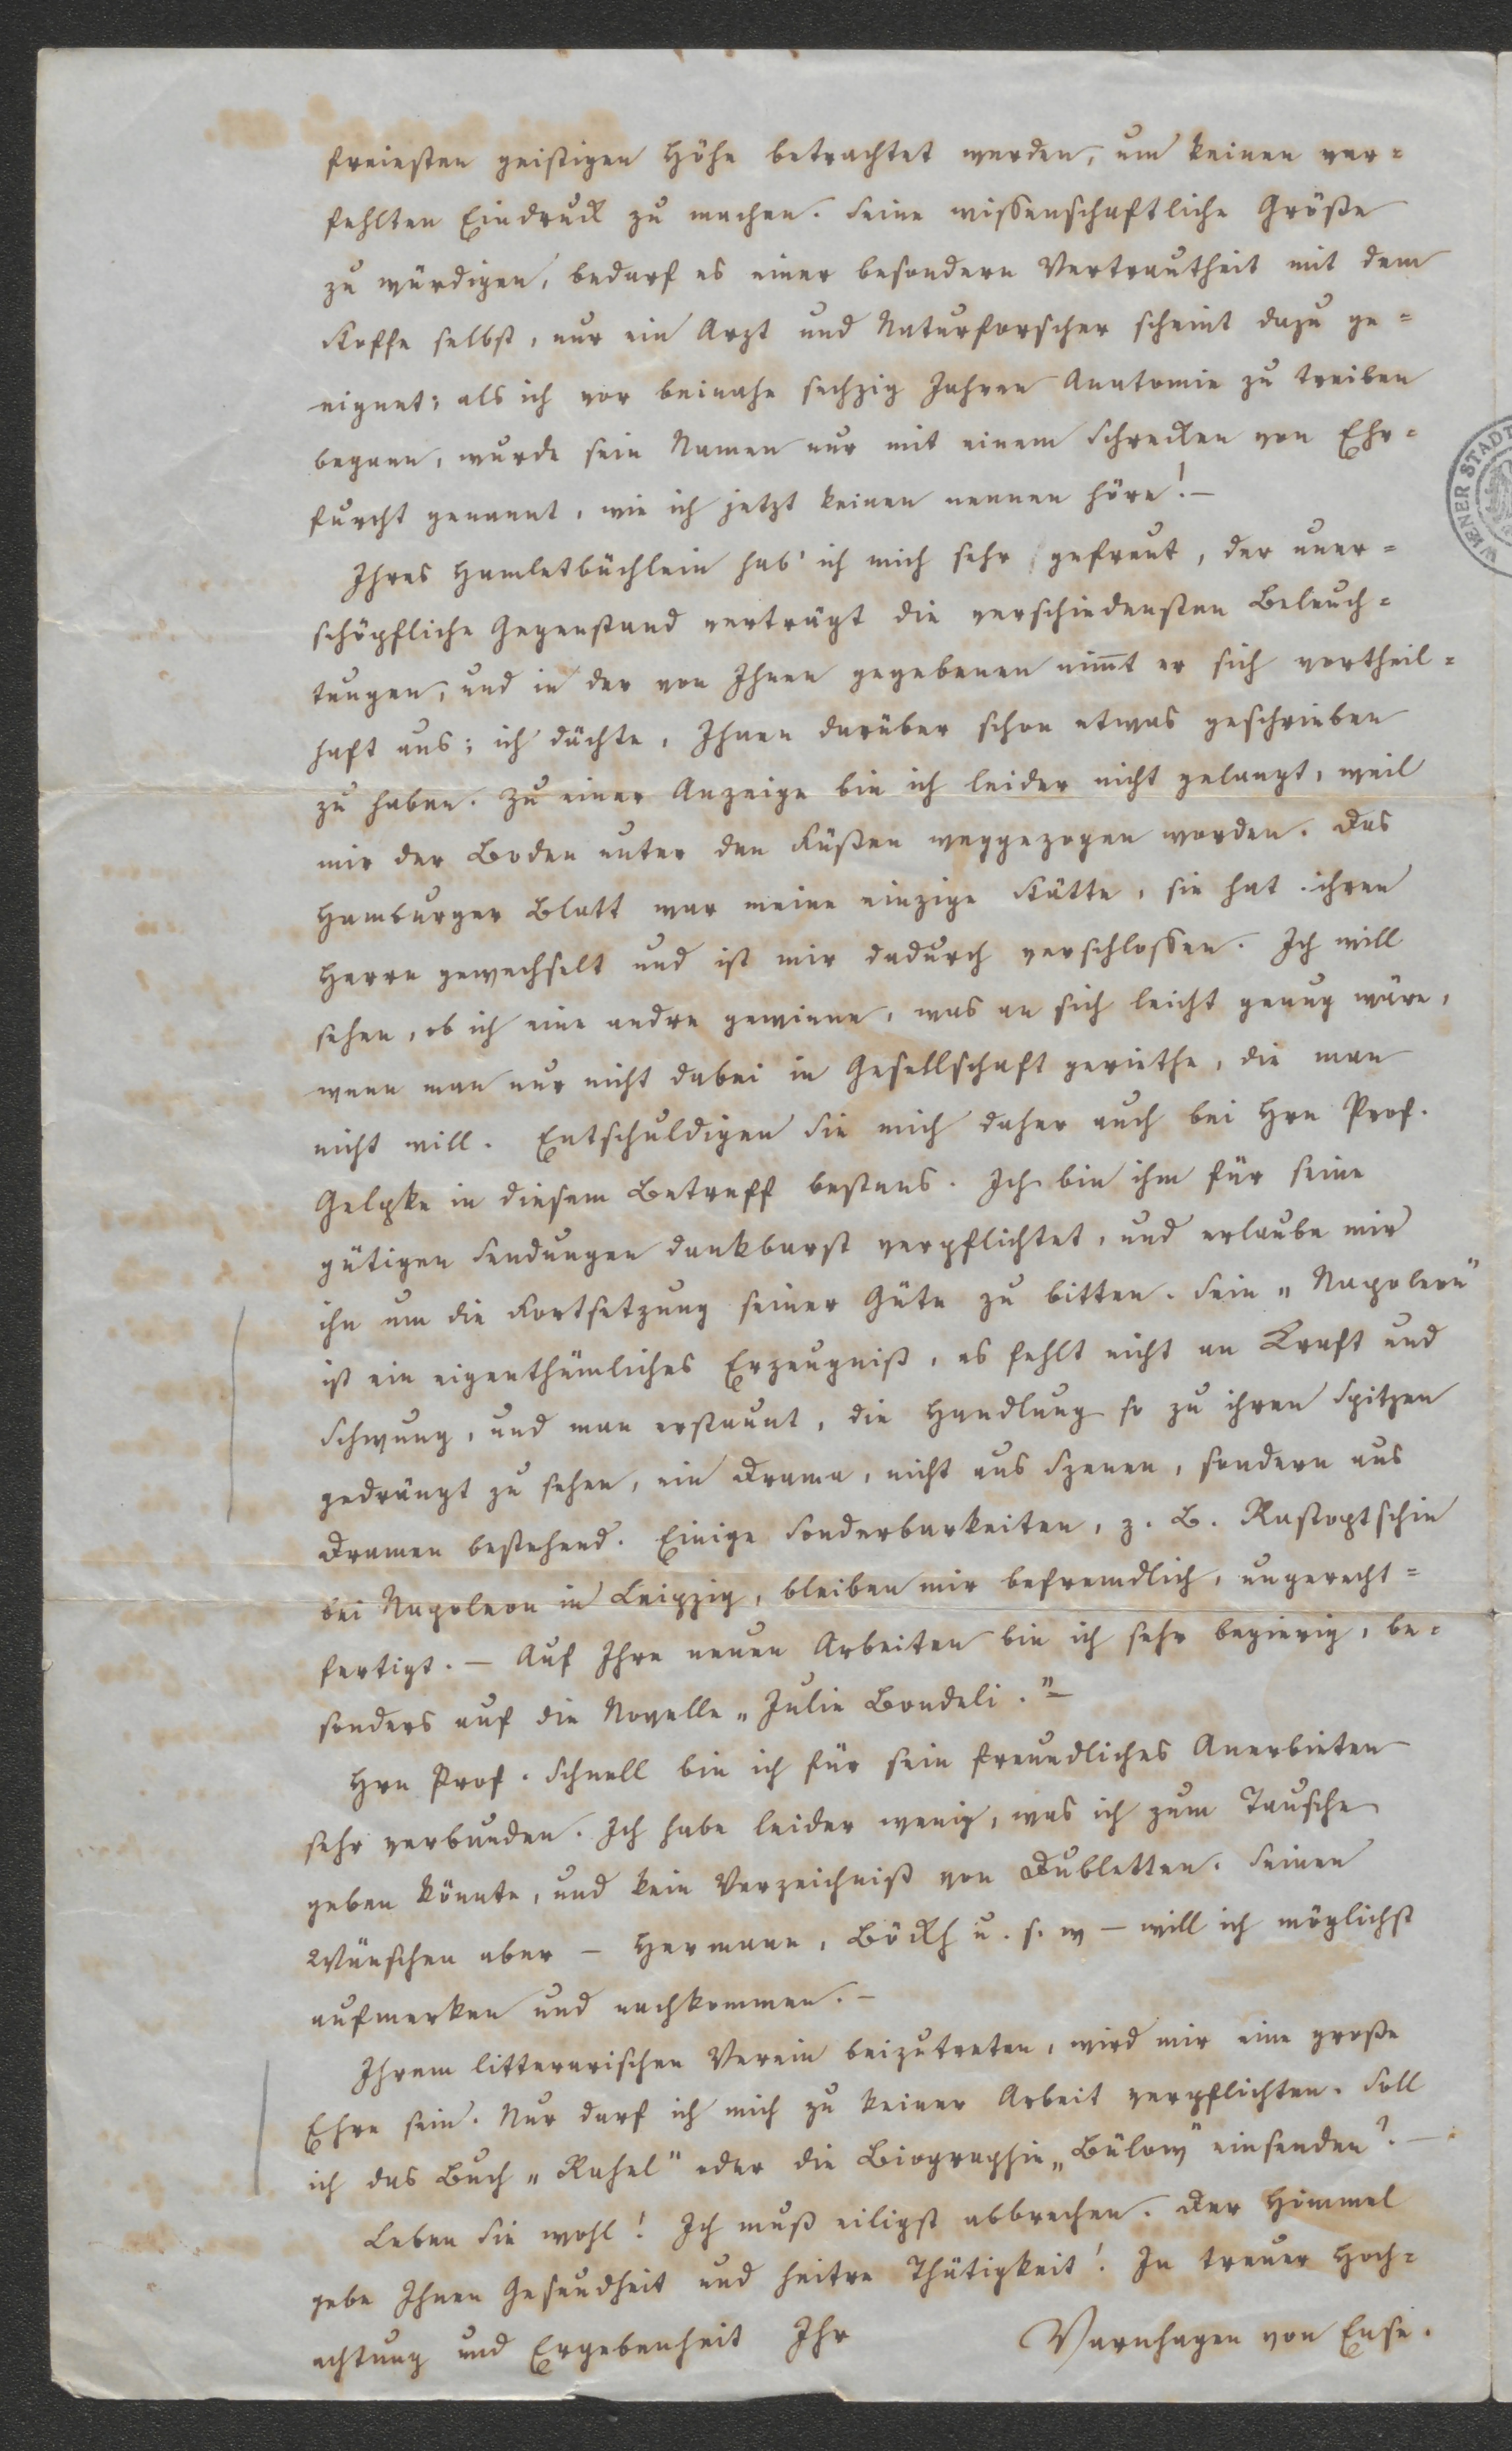 freiesten geistigen Höhe betrachtet werden, um keinen ver=
fehlten Eindruck zu machen. Seine wissenschaftliche Größe
zu würdigen, bedarf es einer besondern Vertrautheit mit dem
Stoffe selbst, nur ein Arzt und Naturforscher scheint dazu ge=
eignet; als ich vor beinahe sechzig Jahren Anatomie zu treiben
begann, wurde sein Namen nur mit einem Schrecken von Ehr=
furcht genannt, wie ich jetzt keinen nennen höre! —
Ihres Hamletbüchlein hab' ich mich sehr gefreut, der uner=
schöpfliche Gegenstand verträgt die verschiedensten Beleuch=
tungen, und in der von Ihnen gegebenen nim̅t er sich vortheil=
haft aus; ich dächte, Ihnen darüber schon etwas geschrieben
zu haben. Zu einer Anzeige bin ich leider nicht gelangt, weil
mir der Boden unter den Füßen weggezogen worden. Das
Hamburger Blatt war meine einzige Stätte, sie hat ihren
Herrn gewechselt und ist mir dadurch verschlossen. Ich will
sehen, ob ich eine andre gewinne, was an sich leicht genug wäre,
wenn man nur nicht dabei in Gesellschaft geriethe, die man
nicht will. Entschuldigen Sie mich daher auch bei Hrn Prof.
Gelpke in diesem Betreff bestens. Ich bin ihm für seine
gütigen Sendungen dankbarst verpflichtet, und erlaube mir
ihn um die Fortsetzung seiner Güte zu bitten. Sein „Napoleon"
ist ein eigenthümliches Erzeugniß, es fehlt nicht an Kraft und
Schwung, und man erstaunt, die Handlung so zu ihren Spitzen
gedrängt zu sehen, ein Drama, nicht aus Szenen, sondern aus
Dramen bestehend. Einige Sonderbarkeiten, z. B. Rastoptschin
bei Napoleon in Leipzig, bleiben mir befremdlich, ungerecht=
fertigt. — Auf Ihre neuen Arbeiten bin ich sehr begierig, be=
sonders auf die Novelle „Julie Bondeli." —
Hrn Prof. Schnell bin ich für sein freundliches Anerbieten
sehr verbunden. Ich habe leider wenig, was ich zum Tausche
geben könnte, und kein Verzeichniß von Dubletten. Seinen
Wünschen aber — Hermann, Böckh u. s. w — will ich möglichst
aufmerken und nachkommen. —
Ihrem litterarischen Verein beizutreten, wird mir eine große
Ehre sein. Nur darf ich mich zu keiner Arbeit verpflichten. Soll
ich das Buch „Rahel" oder die Biographie „Bülow" einsenden? —
Leben Sie wohl! Ich muß eiligst abbrechen. Der Himmel
gebe Ihnen Gesundheit und heitre Thätigkeit! In treuer Hoch=
achtung und Ergebenheit Ihr Varnhagen von Ense.
WIENER STADT